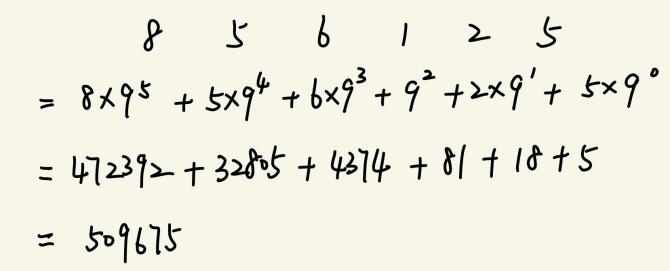 8 5 6 1 2 5
= 8×9⁵ + 5×9⁴ + 6×9³ + 9² + 2×9¹ + 5×9⁰
= 472392 + 32805 + 4374 + 81 + 18 + 5
= 509675